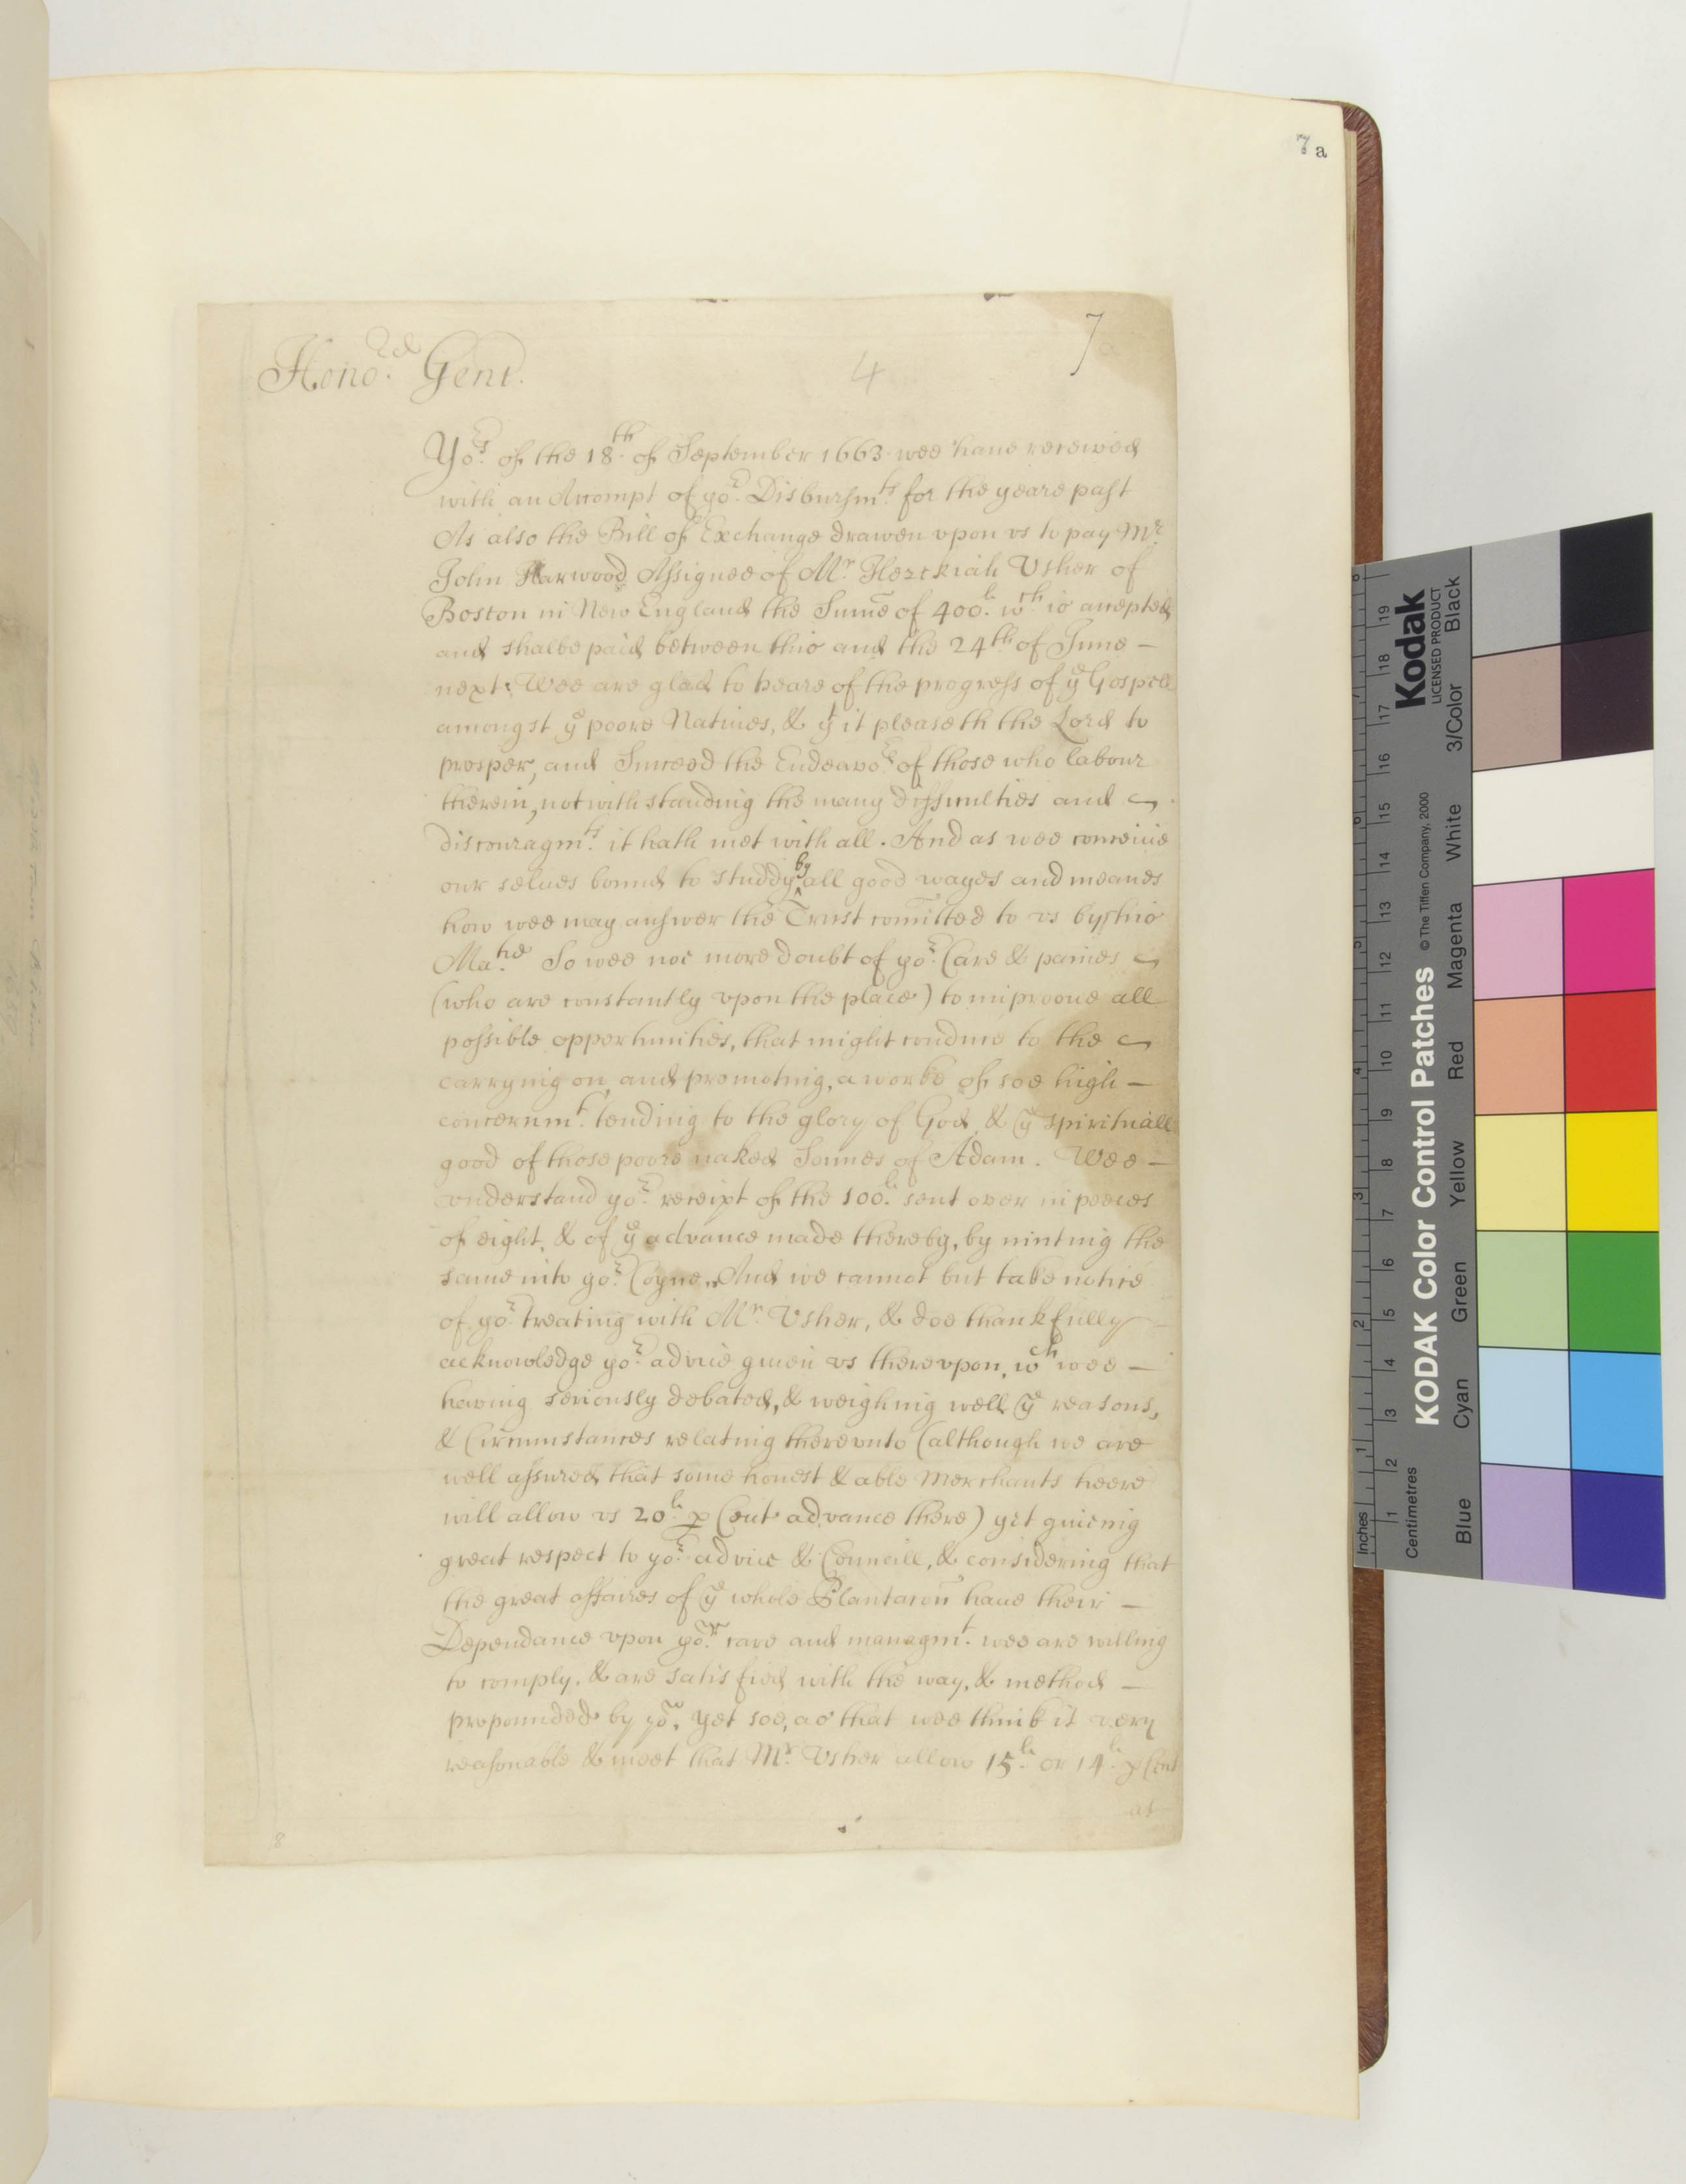 7a
7
4
Hono.rd Gent.
Yo.rs of the 18.th of September 1663 wee haue receiued
with an Accompt of yo.r Disbursm.ts for the yeare past
As also the Bill of Exchange drawen vpon vs to pay Mr.
John Harwood Assignee of Mr. Hezekiah Usher of
Boston in New England the Sume of 400.li wch. is accepted,
and shalbe paid between this and the 24th of June —
next: Wee are glad to heare of the progress of ye Gospell
amongst ye poore Natiues, & yt it pleaseth the Lord to
prosper, and Succeed the Endeavo.rs of those who labour
therein, notwithstanding the many difficulties and
discouragm.ts it hath met with all. And as wee conceiue
our selues bound to studdy by all good wayes and meanes
how wee may answer the Trust comitted to vs by his
Ma.tie So wee noe more doubt of yo.r Care & paines
(who are constantly vpon the place) to improoue all
possible opportunities, that might conduce to the
carrying on, and promoting, a worke of soe high —
concernm.t tending to the glory of God, & ye spirituall
good of those poore naked Sonnes of Adam. Wee —
vnderstand yo.r receipt of the 100.li sent over in peeces
of eight, & of ye advance made thereby, by minting the
same into yo.r Coyne, And we cannot but take notice
of yo.r treating with Mr. Usher, & doe thankfully
acknowledge yo.r advice giuen vs therevpon, wch wee —
having seriously debated, & weighing well ye reasons,
& Circumstances relating therevnto (although we are
well assured that some honest & able Merchants heere
will allow vs 20.li p Cent advance there) yet giueing
great respect to yo.r advice & Councill, & considering that
the great affaires of ye whole Plantacon haue their —
Dependance vpon yo.r care and managm.t wee are willing
to comply, & are satisfied with the way, & method —
propounded by yo.u, yet soe, as that wee think it very
reasonable & meet that Mr. Usher allow 15.li or 14.li p Cent
at
8
Kodak
LICENSED PRODUCT
Black
3/Color
White
Magenta
Red
Yellow
Green
Cyan
Blue
KODAK Color Control Patches
© The Tiffen Company, 2000
Inches
Centimetres
1 2 3 4 5 6 7 8 9 10 11 12 13 14 15 16 17 18 19